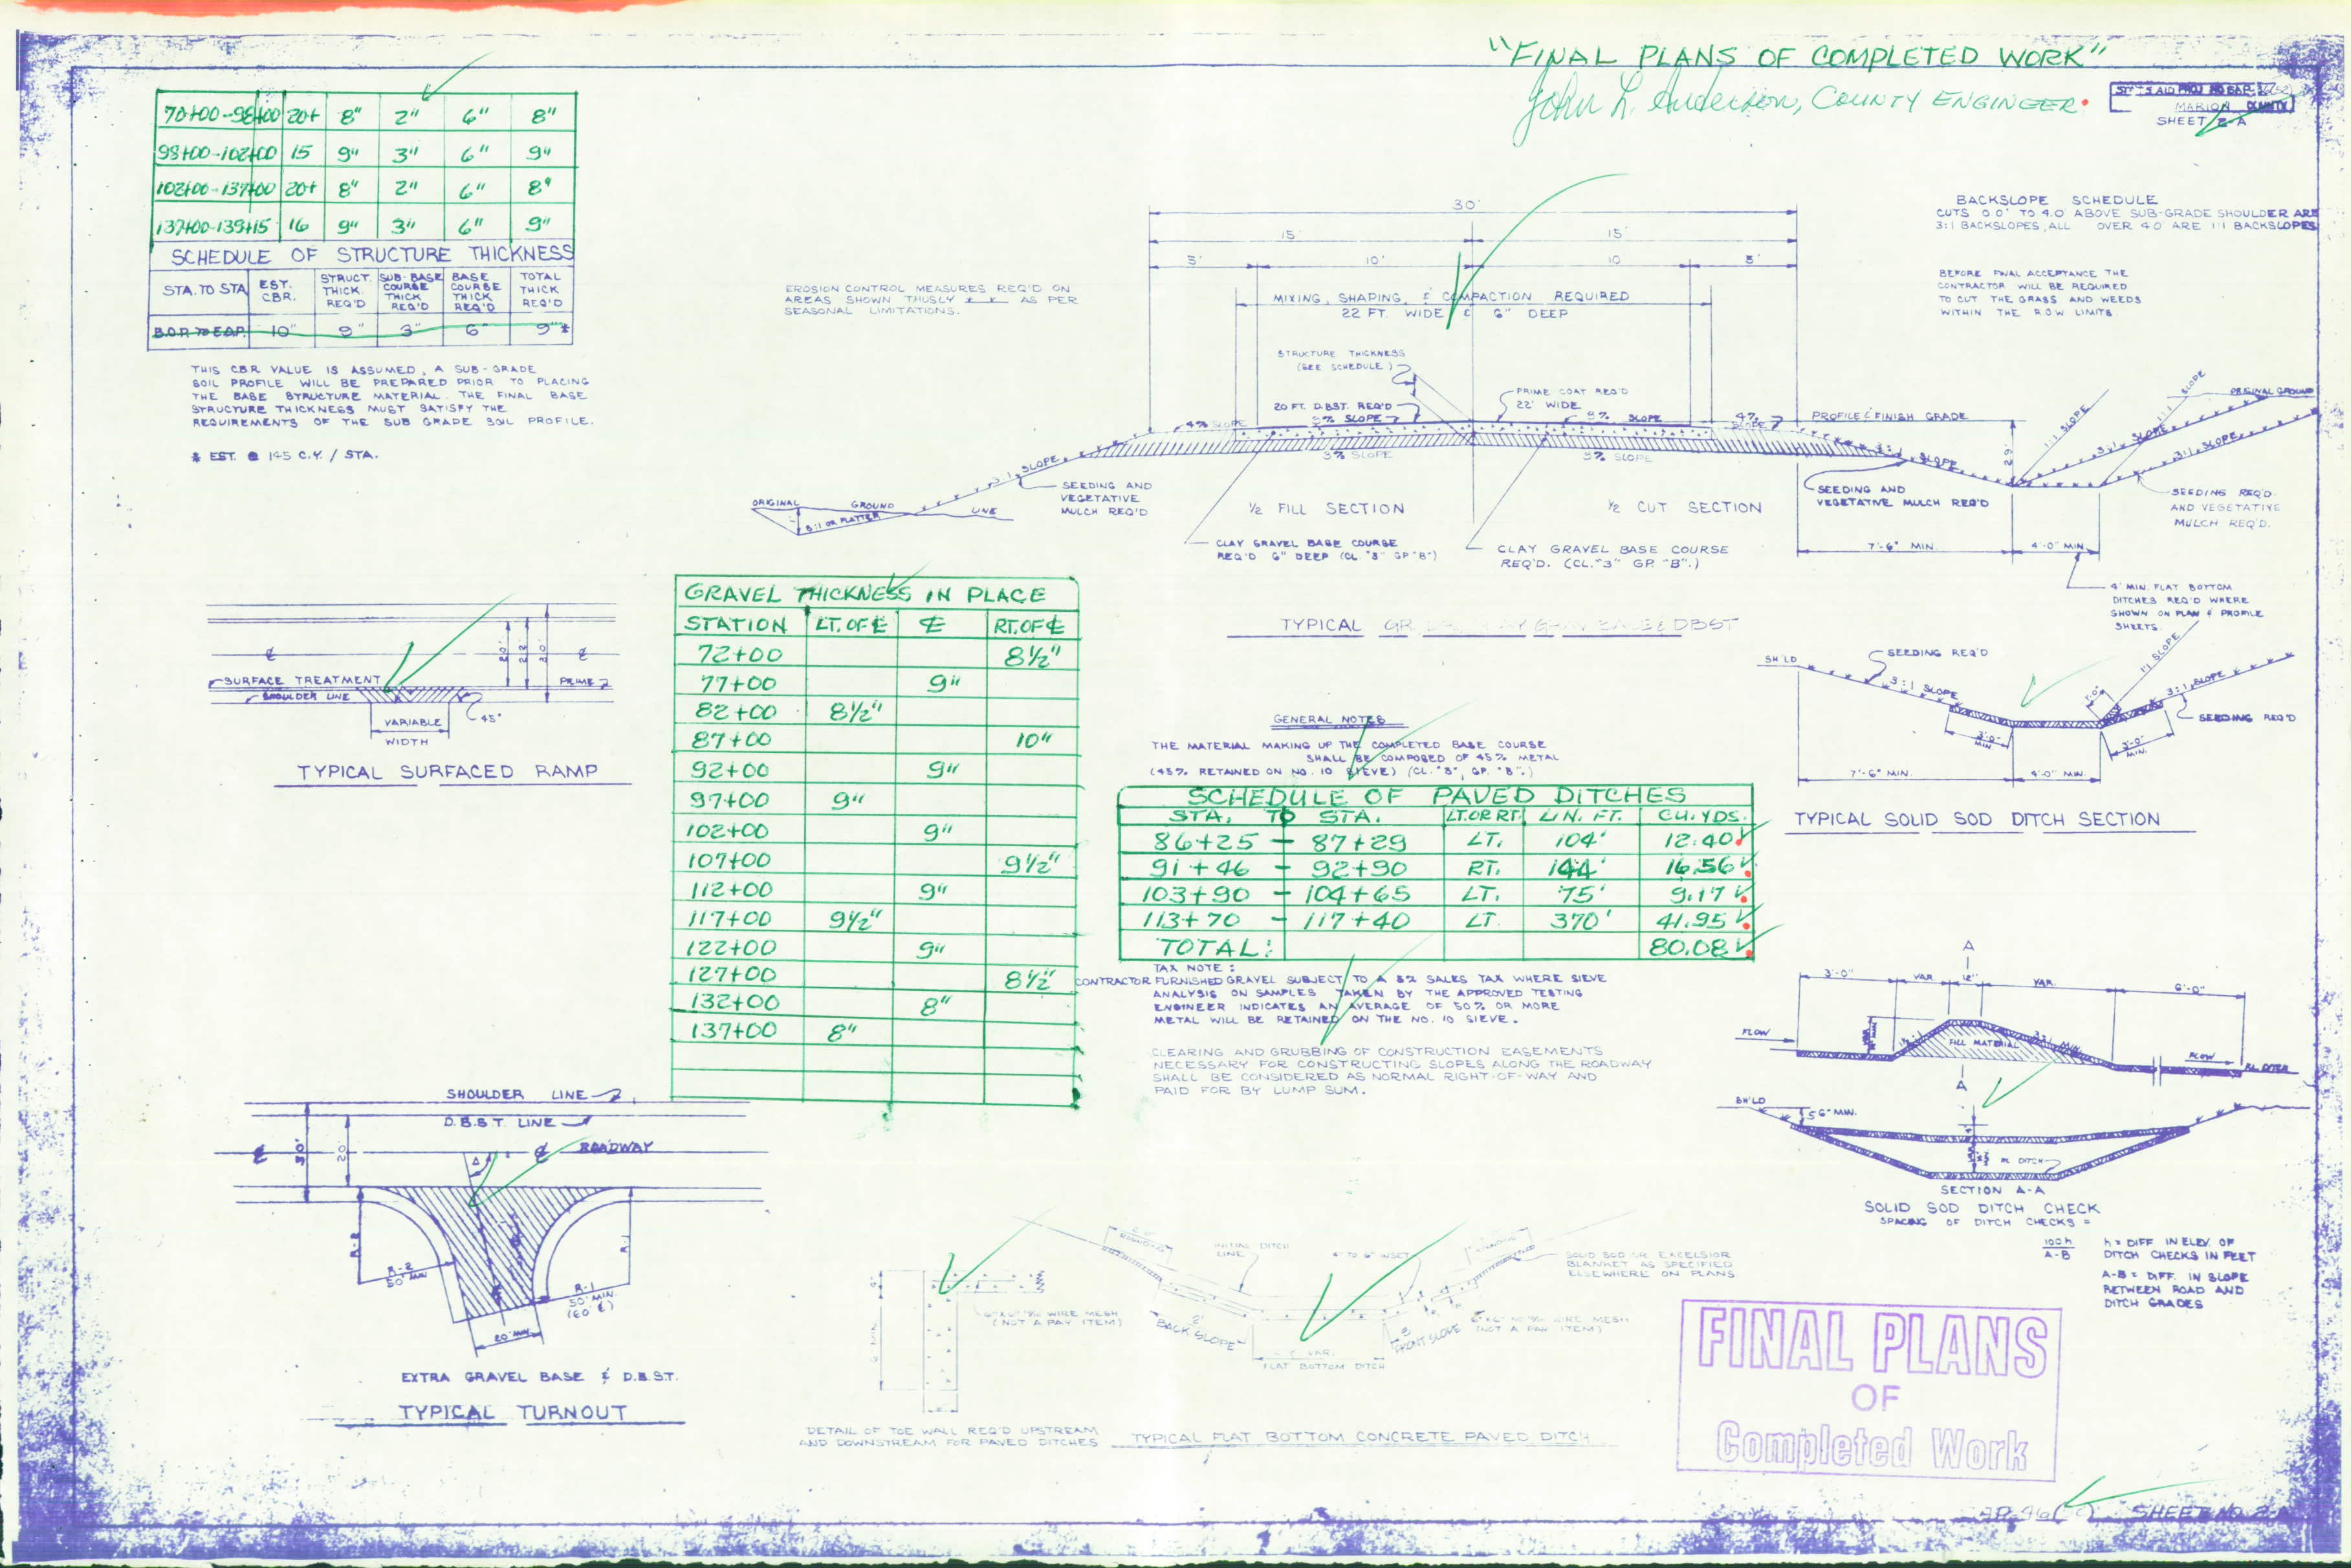 "FINAL PLANS OF COMPLETED WORK"
John L. Anderson, COUNTY ENGINEER.
MARION COUNTY
SHEET 2-A
70+00-98+00 20+ 8" 2" 6" 8"
98+00-102+00 15 9" 3" 6" 9"
102+00-137+00 20+ 8" 2" 6" 8"
137+00-139+15 16 9" 3" 6" 9"
SCHEDULE OF STRUCTURE THICKNESS
STA. TO STA. EST. CBR. STRUCT. THICK. REQ'D SUB-BASE COURSE THICK REQ'D BASE COURSE THICK REQ'D TOTAL THICK REQ'D
B.O.P. TO E.O.P. 10" 9" 3" 6" 9"*
THIS CBR VALUE IS ASSUMED, A SUB-GRADE
SOIL PROFILE WILL BE PREPARED PRIOR TO PLACING
THE BASE STRUCTURE MATERIAL. THE FINAL BASE
STRUCTURE THICKNESS MUST SATISFY THE
REQUIREMENTS OF THE SUB GRADE SOIL PROFILE.
* EST. @ 145 C.Y. / STA.
EROSION CONTROL MEASURES REQ'D ON
AREAS SHOWN THUSLY x x AS PER
SEASONAL LIMITATIONS.
30'
15' 15'
5' 10' 10 5'
MIXING, SHAPING, & COMPACTION REQUIRED
22 FT. WIDE & 6" DEEP
STRUCTURE THICKNESS
(SEE SCHEDULE)
PRIME COAT REQ'D
22' WIDE
20 FT. D.B.S.T. REQ'D
4% SLOPE
3% SLOPE
3% SLOPE
4% SLOPE
PROFILE & FINISH GRADE
3% SLOPE
3% SLOPE
3:1 SLOPE
SEEDING AND
VEGETATIVE
MULCH REQ'D
ORIGINAL GROUND LINE
8:1 OR FLATTER
1/2 FILL SECTION
1/2 CUT SECTION
CLAY GRAVEL BASE COURSE
REQ'D 6" DEEP (CL. "3" GP. "B")
CLAY GRAVEL BASE COURSE
REQ'D. (CL. "3" GP. "B".)
SEEDING AND
VEGETATIVE MULCH REQ'D
1:1 SLOPE
3:1 SLOPE
1:1 SLOPE
3:1 SLOPE
ORIGINAL GROUND
SEEDING REQ'D.
AND VEGETATIVE
MULCH REQ'D.
7'-6" MIN. 4'-0" MIN.
4' MIN. FLAT BOTTOM
DITCHES REQ'D WHERE
SHOWN ON PLAN & PROFILE
SHEETS.
BACKSLOPE SCHEDULE
CUTS 0.0' TO 4.0' ABOVE SUB-GRADE SHOULDER ARE
3:1 BACKSLOPES, ALL OVER 4.0' ARE 1:1 BACKSLOPES
BEFORE FINAL ACCEPTANCE THE
CONTRACTOR WILL BE REQUIRED
TO CUT THE GRASS AND WEEDS
WITHIN THE R.O.W LIMITS
TYPICAL BASE & DBST
SURFACE TREATMENT
SHOULDER LINE
PRIME
45°
VARIABLE
WIDTH
TYPICAL SURFACED RAMP
GRAVEL THICKNESS IN PLACE
STATION LT. OF ℄ ℄ RT. OF ℄
72+00 8 1/2"
77+00 9"
82+00 8 1/2"
87+00 10"
92+00 9"
97+00 9"
102+00 9"
107+00 9 1/2"
112+00 9"
117+00 9 1/2"
122+00 9"
127+00 8 1/2"
132+00 8"
137+00 8"
GENERAL NOTES
THE MATERIAL MAKING UP THE COMPLETED BASE COURSE
SHALL BE COMPOSED OF 45% METAL
(45% RETAINED ON NO. 10 SIEVE) (CL. "3", GP. "B".)
SCHEDULE OF PAVED DITCHES
STA. TO STA. LT. OR RT. LIN. FT. CU. YDS.
86+25 - 87+29 LT. 104' 12.40
91+46 - 92+90 RT. 144' 16.56
103+90 - 104+65 LT. 75' 9.17
113+70 - 117+40 LT. 370' 41.95
TOTAL: 80.08
TAX NOTE:
CONTRACTOR FURNISHED GRAVEL SUBJECT TO A 5% SALES TAX WHERE SIEVE
ANALYSIS ON SAMPLES TAKEN BY THE APPROVED TESTING
ENGINEER INDICATES AN AVERAGE OF 50% OR MORE
METAL WILL BE RETAINED ON THE NO. 10 SIEVE.
CLEARING AND GRUBBING OF CONSTRUCTION EASEMENTS
NECESSARY FOR CONSTRUCTING SLOPES ALONG THE ROADWAY
SHALL BE CONSIDERED AS NORMAL RIGHT-OF-WAY AND
PAID FOR BY LUMP SUM.
SH'LD
SEEDING REQ'D
3:1 SLOPE
1:1 SLOPE
3:1 SLOPE
SEEDING REQ'D
3'-0" MIN.
3'-0" MIN.
7'-6" MIN. 4'-0" MIN.
TYPICAL SOLID SOD DITCH SECTION
A
3'-0" VAR. 12" VAR. 6'-0"
FLOW
FILL MATERIAL
FLOW
A
SH'LD
PL DITCH
SECTION A-A
SOLID SOD DITCH CHECK
SPACING OF DITCH CHECKS =
100 h
A-B
h = DIFF IN ELEV. OF
DITCH CHECKS IN FEET
A-B = DIFF. IN SLOPE
BETWEEN ROAD AND
DITCH GRADES
SHOULDER LINE
D.B.S.T. LINE
℄ ROADWAY
30'
20'
R-2
R-2
50' MIN
R-1
R-1
50' MIN.
(60 ℄)
20' MIN
EXTRA GRAVEL BASE & D.B.S.T.
TYPICAL TURNOUT
WIRE MESH
(NOT A PAY ITEM)
DETAIL OF TOE WALL REQ'D UPSTREAM
AND DOWNSTREAM FOR PAVED DITCHES
INITIAL DITCH
LINE
4" TO 6" INSET
SOLID SOD OR EXCELSIOR
BLANKET AS SPECIFIED
ELSEWHERE ON PLANS
BACK SLOPE
FRONT SLOPE
WIRE MESH
(NOT A PAY ITEM)
VAR.
FLAT BOTTOM DITCH
TYPICAL FLAT BOTTOM CONCRETE PAVED DITCH
FINAL PLANS
OF
Completed Work
SHEET NO. 2-A